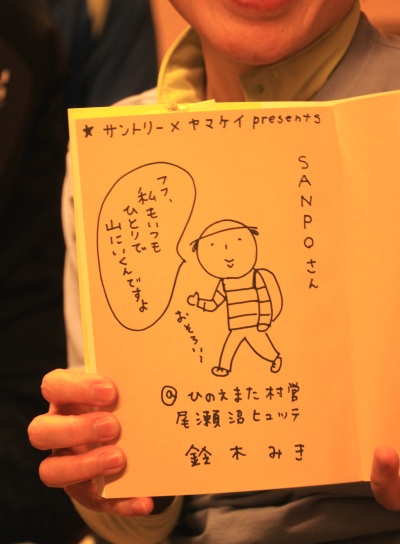 ★ サントリー×ヤマケイ presents
SANPOさん
フフ、
私もいつも
ひとりで
山にいくんですよ
おそろい〜
@ ひのえまた村営
尾瀬沼ヒュッテ
鈴木みき